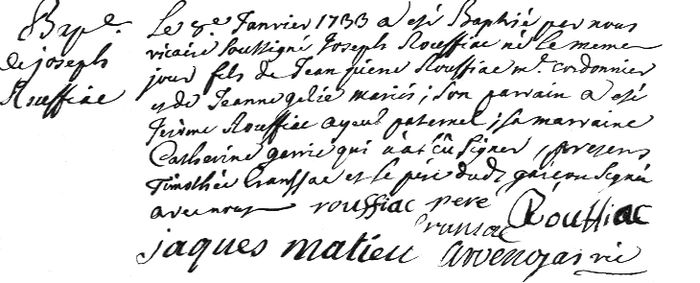 Bap.e
de joseph
Rouffiac
Le 8.e Janvier 1733 a esté Baptisé par nous
vicaire soussigné Joseph Rouffiac né le meme
jour fils de Jean pierre Rouffiac m.e cordonnier
et de Jeanne gelié mariés; son parrain a esté
Jerôme Rouffiac ayeul paternel; sa marraine
Catherine qui n'a sçu signer, presens
Timothée Cranssac et le pere dud. garçon signés
avec nous rouffiac pere Rouffiac
Cransac
jaques matieu vic